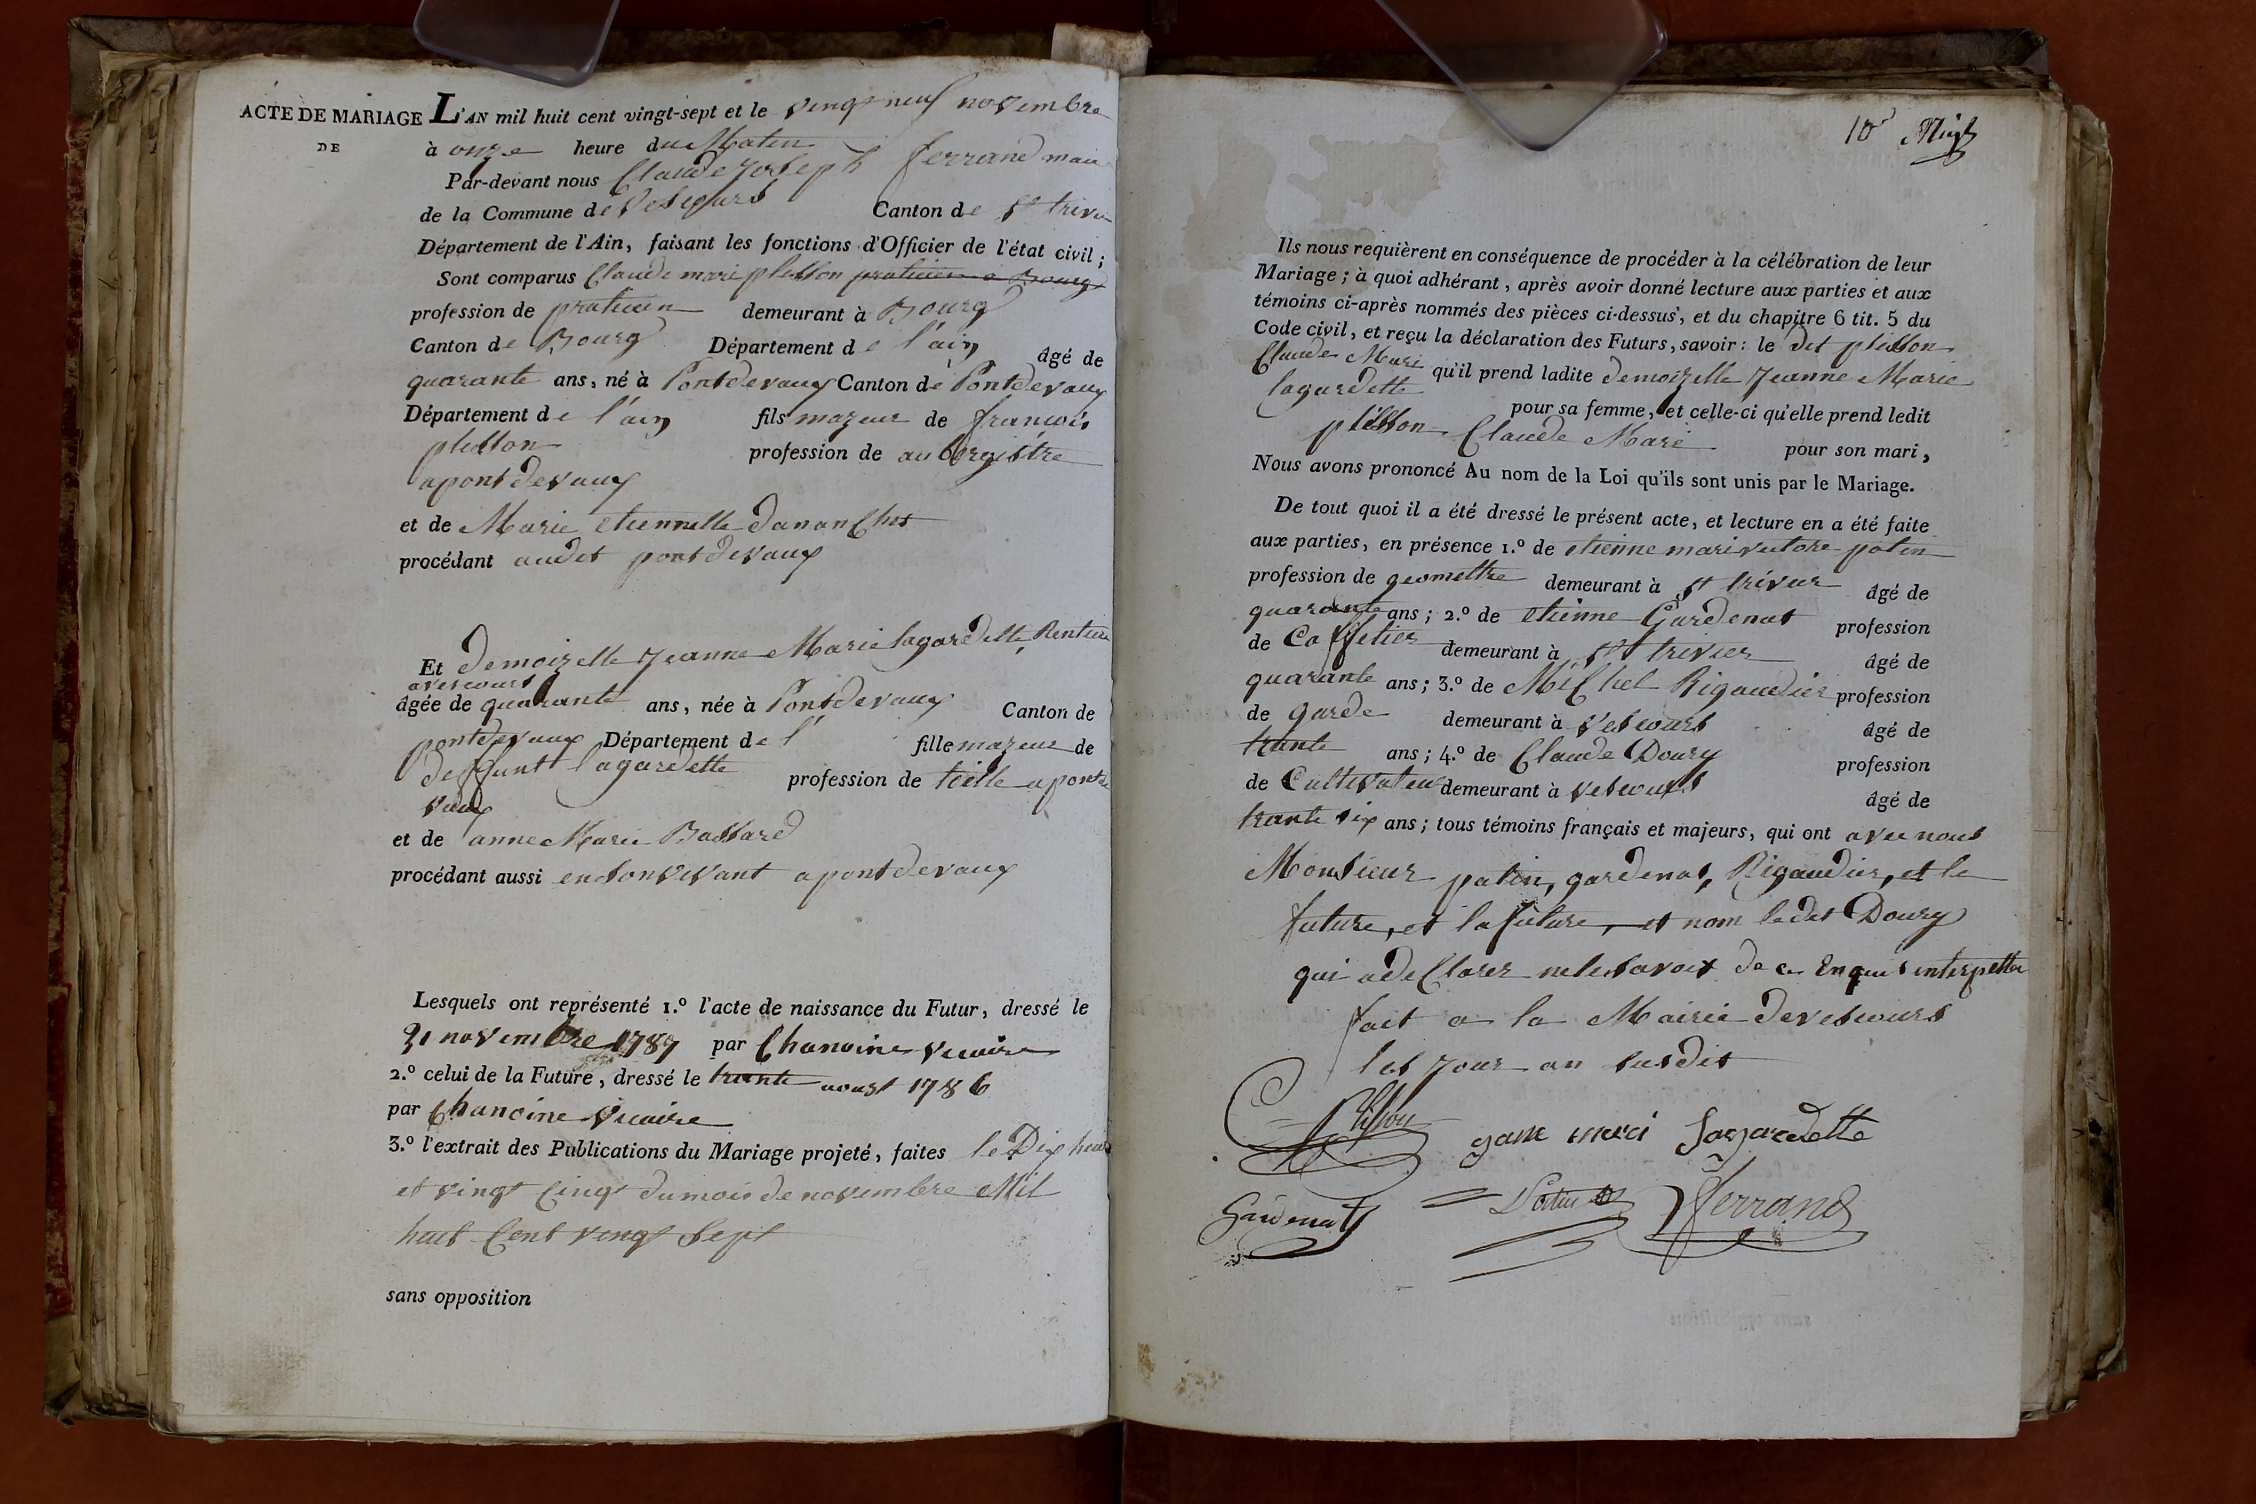 ACTE DE MARIAGE
DE
L'AN mil huit cent vingt-sept et le vingt neuf novembre
à onze heure du Matin
Par-devant nous Claude Joseph ferrand mair
de la Commune de Vescours Canton de St trivier
Département de l'Ain, faisant les fonctions d'Officier de l'état civil;
Sont comparus Claude mari plisson praticien a Bourg
profession de praticien demeurant à Bourg
Canton de Bourg Département de l'ain âgé de
quarante ans, né à Pontdevaux Canton de Pontdevaux
Département de l'ain fils majeur de françois
plisson profession de aubergistre
a pontdevaux
et de Marie etiennette
procédant audit pontdevaux
Et demoizelle Jeanne Marie lagardette, Rentiere
a vescours
âgée de quarante ans, née à Pontdevaux Canton de
pontdevaux Département de l' fille majeur de
deffunt lagardette profession de a pontde
vaux
et de anne Marie Bassard
procédant aussi en son vivant a pontdevaux
Lesquels ont représenté 1.º l'acte de naissance du Futur, dressé le
novembre 1787 par Chanoine vicaire
2.º celui de la Future, dressé le trante aoust 1786
par Chanoine vicaire
3.º l'extrait des Publications du Mariage projeté, faites le Dix huit
et vingt Cinq du mois de novembre Mil
huit Cent vingt Sept
sans opposition
10
Ils nous requièrent en conséquence de procéder à la célébration de leur
Mariage; à quoi adhérant, après avoir donné lecture aux parties et aux
témoins ci-après nommés des pièces ci-dessus, et du chapitre 6 tit. 5 du
Code civil, et reçu la déclaration des Futurs, savoir: le dit plisson
Claude Mari qu'il prend ladite demoizelle Jeanne Marie
lagardette pour sa femme, et celle-ci qu'elle prend ledit
plisson Claude Mari pour son mari,
Nous avons prononcé Au nom de la Loi qu'ils sont unis par le Mariage.
De tout quoi il a été dressé le présent acte, et lecture en a été faite
aux parties, en présence 1.º de etienne mari victore patin
profession de geomettre demeurant à St trivier âgé de
quarante ans; 2.º de etienne Gardenat profession
de Caffetier demeurant à St trivier âgé de
quarante ans; 3.º de Michel Rigaudier profession
de garde demeurant à Vescours âgé de
trante ans; 4.º de Claude Doury profession
de Cultivateur demeurant à vescours âgé de
trante six ans; tous témoins français et majeurs, qui ont avec nous
Monsieur patin, gardenat, Rigaudier, et le
future, et la future, et nom ledit Doury
qui a declarer ne le savoir de ce Enquis interpetter
fait a la Mairie de vescours
les jour an susdit
Plisson
gane merci Lagardette
Gardenat
Patin
Ferrand